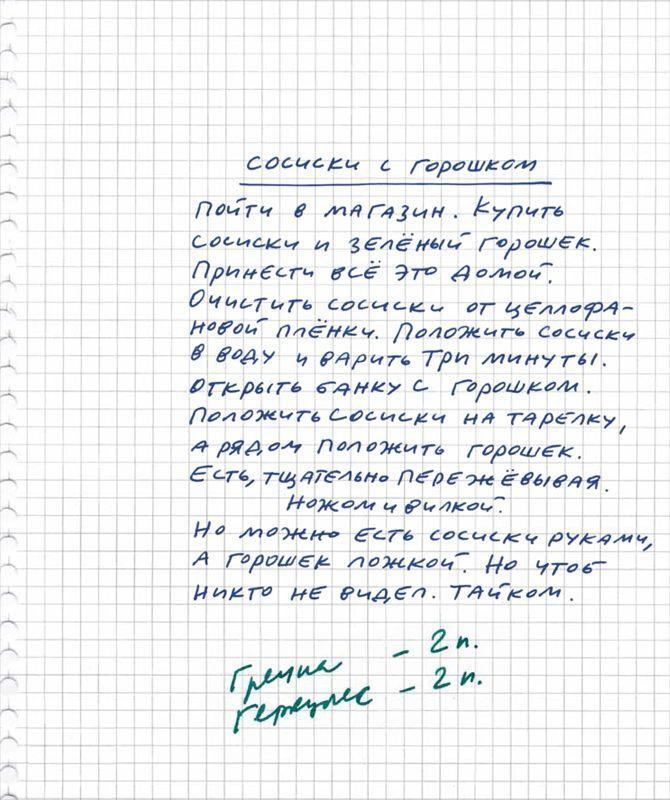 СОСИСКИ С ГОРОШКОМ
ПОЙТИ В МАГАЗИН. КУПИТЬ
СОСИСКИ И ЗЕЛЁНЫЙ ГОРОШЕК.
ПРИНЕСТИ ВСЁ ЭТО ДОМОЙ.
ОЧИСТИТЬ СОСИСКИ ОТ ЦЕЛЛОФА-
НОВОЙ ПЛЁНКИ. ПОЛОЖИТЬ СОСИСКИ
В ВОДУ И ВАРИТЬ ТРИ МИНУТЫ.
ОТКРЫТЬ БАНКУ С ГОРОШКОМ.
ПОЛОЖИТЬ СОСИСКИ НА ТАРЕЛКУ,
А РЯДОМ ПОЛОЖИТЬ ГОРОШЕК.
ЕСТЬ, ТЩАТЕЛЬНО ПЕРЕЖЁВЫВАЯ.
НОЖОМ И ВИЛКОЙ.
НО МОЖНО ЕСТЬ СОСИСКИ РУКАМИ,
А ГОРОШЕК ЛОЖКОЙ. НО ЧТОБ
НИКТО НЕ ВИДЕЛ. ТАЙКОМ.
Гречка - 2 п.
Геркулес - 2 п.